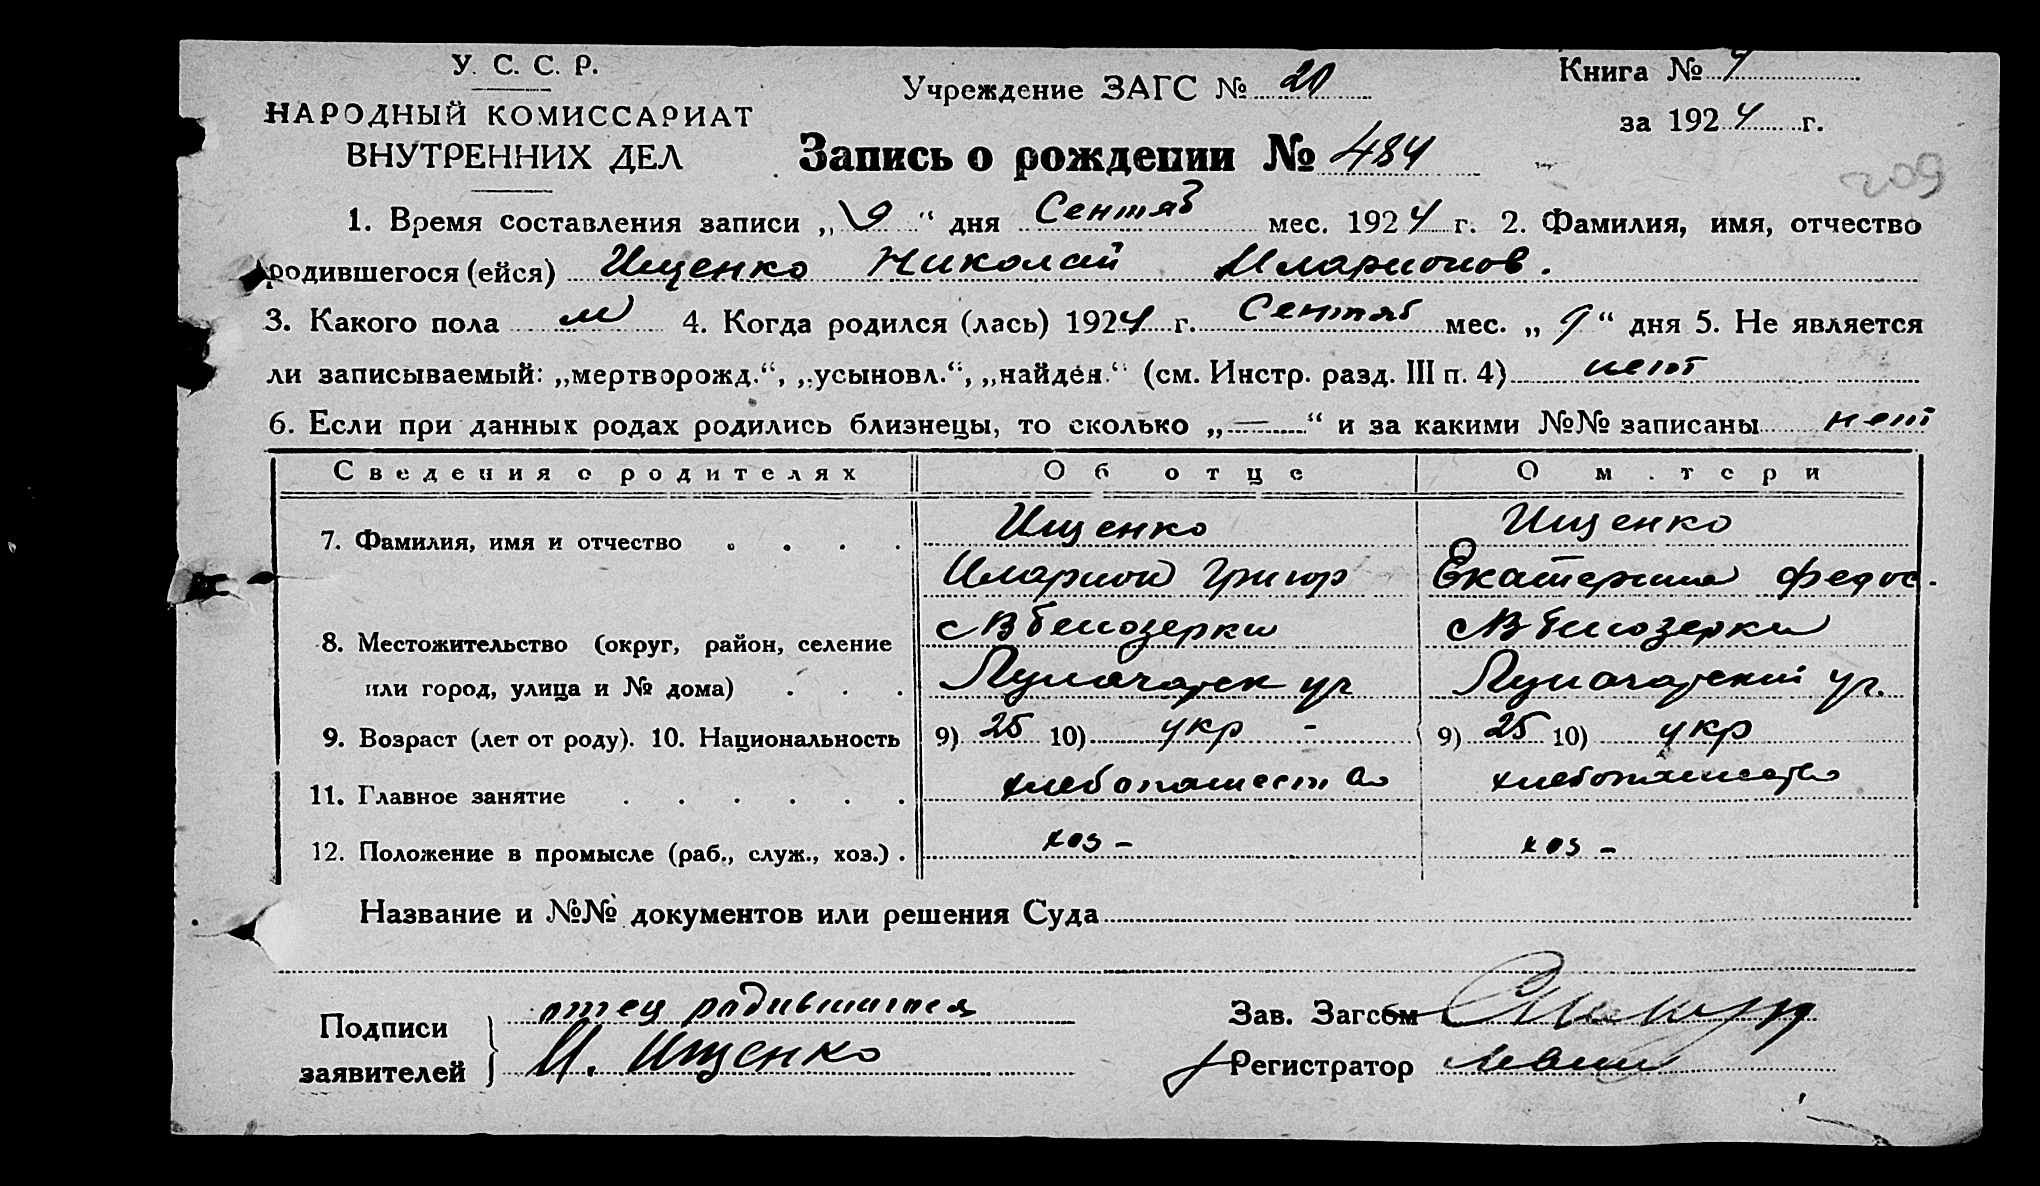 У. С. С. Р.
НАРОДНЫЙ КОМИССАРИАТ
ВНУТРЕННИХ ДЕЛ
Учреждение ЗАГС № 20
Книга № 4
за 1924 г.
Запись о рождении № 484
209
1. Время составления записи „19“ дня Сентяб мес. 1924 г. 2. Фамилия, имя, отчество
родившегося (ейся) Ищенко Николай Иларионов.
3. Какого пола м 4. Когда родился (лась) 1924 г. Сентяб мес. „9“ дня 5. Не является
ли записываемый: „мертворожд.“, „усыновл.“, „найден.“ (см. Инстр. разд. III п. 4) нет
6. Если при данных родах родились близнецы, то сколько „—“ и за какими №№ записаны нет
Сведения о родителях Об отце О м.тери
7. Фамилия, имя и отчество . . . . Ищенко Ищенко
Иларион Григор Екатерина Федос.
с В Белозерки с В Белозерки
8. Местожительство (округ, район, селение
или город, улица и № дома) . . .
9. Возраст (лет от роду). 10. Национальность 9) 25 10) укр - 9) 25 10) укр
11. Главное занятие . . . . . . хлебопашество хлебопашество
12. Положение в промысле (раб., служ., хоз.) . хоз - хоз -
Название и №№ документов или решения Суда
Подписи
заявителей
отец родившагося
И. Ищенко
Зав. Загсом
Регистратор